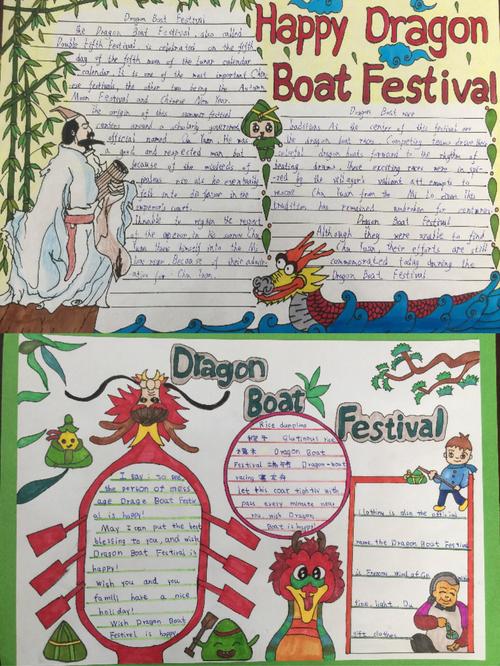 Happy Dragon
Boat Festival
Dragon Boat Festival
the Dragon Boat Festival, also called
Double Fifth Festival is celebrated on the fifth
day of the fifth moon of the lunar calendar
calendar. It is one of the most important Chin
ese festivals, the other two being the Autumn
Moon Festival and Chinese New Year.
The origin of this summer festival
centers around a scholarly government
official named Chu Yuan. He was
a good and respected man but
because of the misdeeds of
jealous rivals he eventually
fell into disfavor in the
emperor's court.
Unable to regain the respect
of the emperor in his sorrow Chu
Yuan threw himself into the Mi
low river Because of their admir
ation for Chu Yuan.
Dragon Boat race
Traditions At the center of this festival are
the dragon boat races. Competing teams drive their
colorful dragon boats forward to the rhythm of
beating drums These exciting races were in spi
red by the villager's valiant attempts to
rescue Chu Yuan from the Mi Lo river this
tradition has remained unbroken for centuries
Dragon Boat Festival
Although they were unable to find
Chu Yuan their efforts are still
commemorated today during the
Dragon Boat Festival
Dragon
Boat
Festival
I say: so
the person of mess
age Drago Boat Festiv
al is happy!
May I can put the best
blessing to you, and wish
Dragon Boat Festival is
happy!
Wish you and you
famils have a nice
holiday!
Wish Dragon Boat
Festivel is happy
Rice dumpling
粽子 Glutinous rice
糯米 Dragon Boat
Festival 端午节 Dragon-boat
racing 赛龙舟
let this coar tightiv with
pass every minute near
you, wish Dragon
Boat is happy!
clothing is also the official
name the Dragon Boat Festival
is Enseons Wind of Ge
fine, light, Du
gift clothes